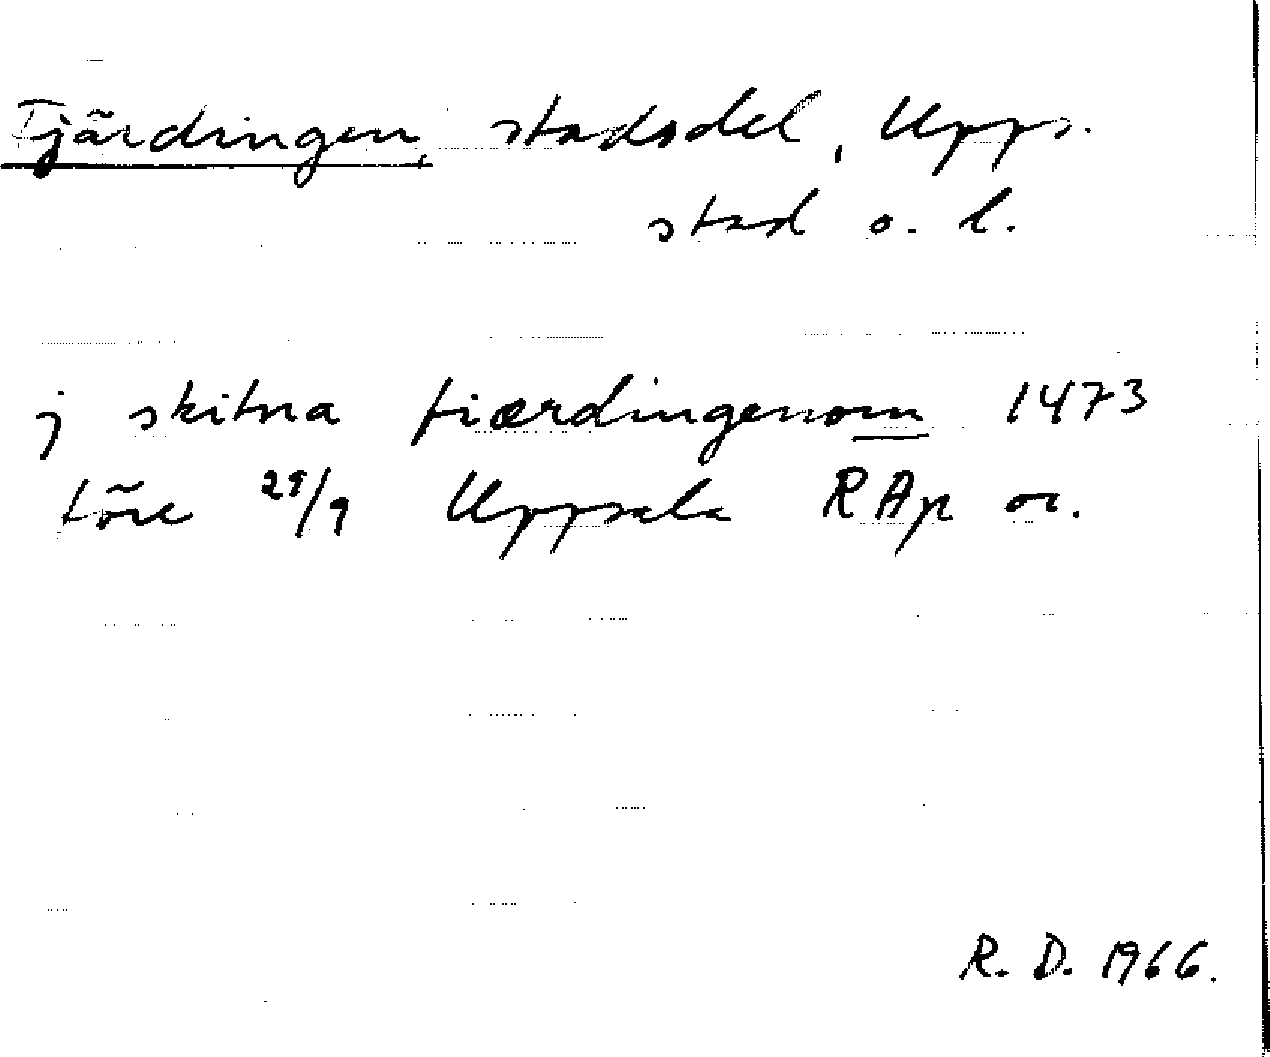 Fjärdingen, stadsdel, Upps.
stad o. l.
j skitna fiærdingenom 1473
före 29/9 Uppsala RAp or.
R. D. 1966.